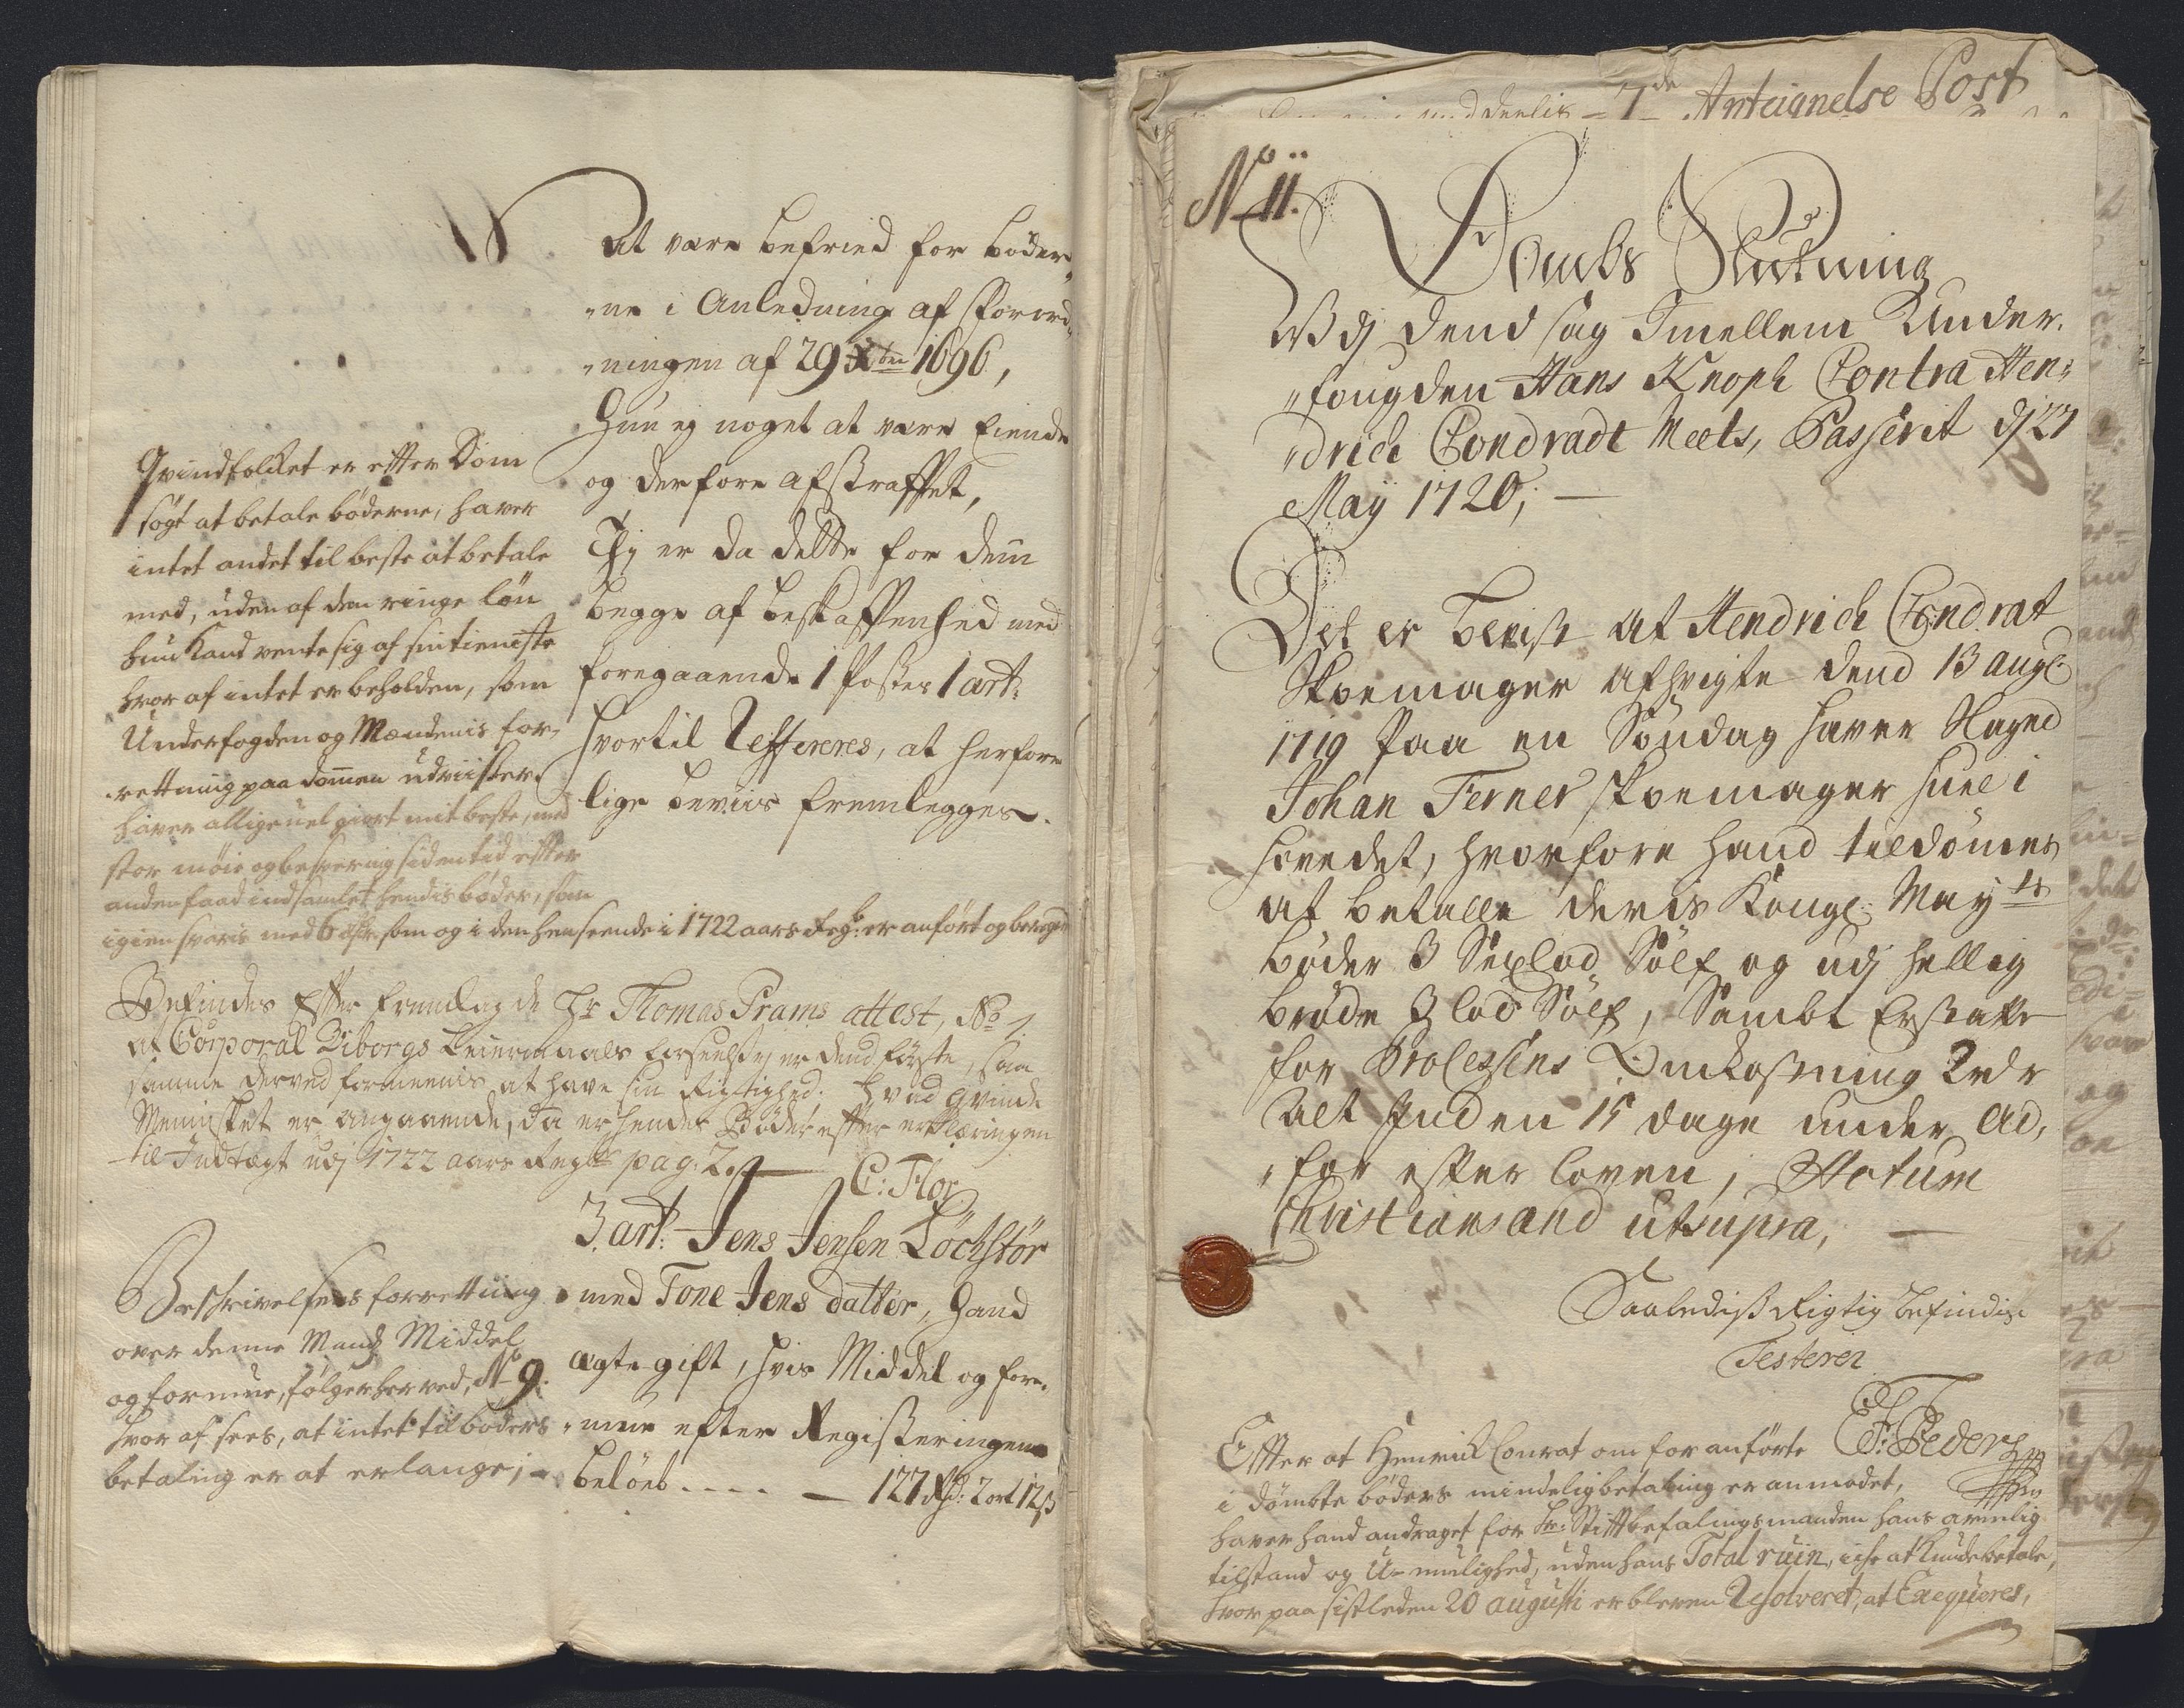 At være befried for bøder-
"ne i Anledning af Forord-
"ningen af 29 Xbr 1696,
Hun ej noget at være Eiende
og derfore afstraffet,
Thj er da dette for dem
begge af beskaffenhed med
foregaaende 1 Postes 1 art:
hvortil Refereres, at herfore
lige beviis fremlegges.
Qvindfolket er effter Dom
søgt at betale bøderne, haver
intet andet til beste at betale
med, uden af den ringe løn
hun Kand vente sig af sin tieneste
hvor af intet er beholden, som
Underfogden og Mændenis for-
"rettning paa dommen udviiser.
haver alligeuel giort mit beste, med
stor møie og besværing siden tid effter
anden faaed indsamlet hendis bøder, som
igien svaris med 6 som og i den henseende i 1722 aars Regsk: er anført og beregn
Befindes Effter fremlagde Hr Thomas Prams attest, No 7
at Corporal Viborgs Leiermaals forseelse er dend første, saa
samme derved formeenis at have sin Rigtighed; hvad qvinde
Mennisket er angaaende, da er hendes Bøder effter erklæringen
til Indtægt udj 1722 aars Regsk pag: 2.
C: Flor
3. art: Jens Jensen Löchstör
med Tone Jens datter, Hand
ægte gift, hvis Middel og for-
"mue efter Registeringen
beløeb .... — 127 Rd: 2 ort 12 ß
Beskrivelsens forretning
over denne Mands Middel
og formue, følger herved, No 9.
hvor af sees, at intet til bøders
betaling er at erlange;
7de Anteignelse Post
No 11.
Dombs Slutning
Udj dend sag Imellem Under-
"fougden Hans Knoph Contra Hen-
"drich Condradt Meets, Passerit dj 27
Maÿ 1720; —
Det er beviist at Hendrich Condrat
Skoemager afhvigte dend 13 augl
1719 Paa en Søndag haver Slaged
Johan Ferner skoemager huel i
hovedet, hvorfore hand tildømes
at betalle deris Kongl: Maÿts
bøder 3 Sexlod Sølf og udj hellig
brøde 3 lod Sølf, Sambt Erstatte
for Processens Omkostning 2 rdr
alt Inden 15 dage under Ad-
"fær effter loven, Actum
Christiansand ut supra, —
Saaledis Rigtig befindis
Testerer
E: F: Pedersen
Effter at Henrick Conrat om for anførte
i dømbte bøders mindelig betaling er anmodet,
haver hand andraget for Hr: Stiftbefalingsmanden hans armelig
tilstand og U-muelighed, uden hans Total ruin, iche at kunde betale,
hvor paa sistleden 20 augusti er bleven Resolveret, at Exeqveres,